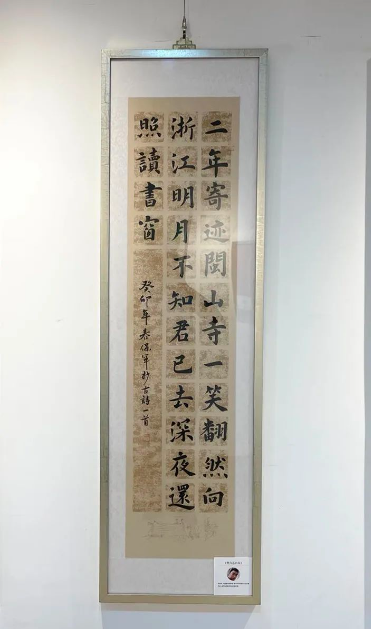 二年寄迹閩山寺一笑翻然向
浙江明月不知君已去深夜還
照讀書窗
癸卯年春保軍抄古詩一首